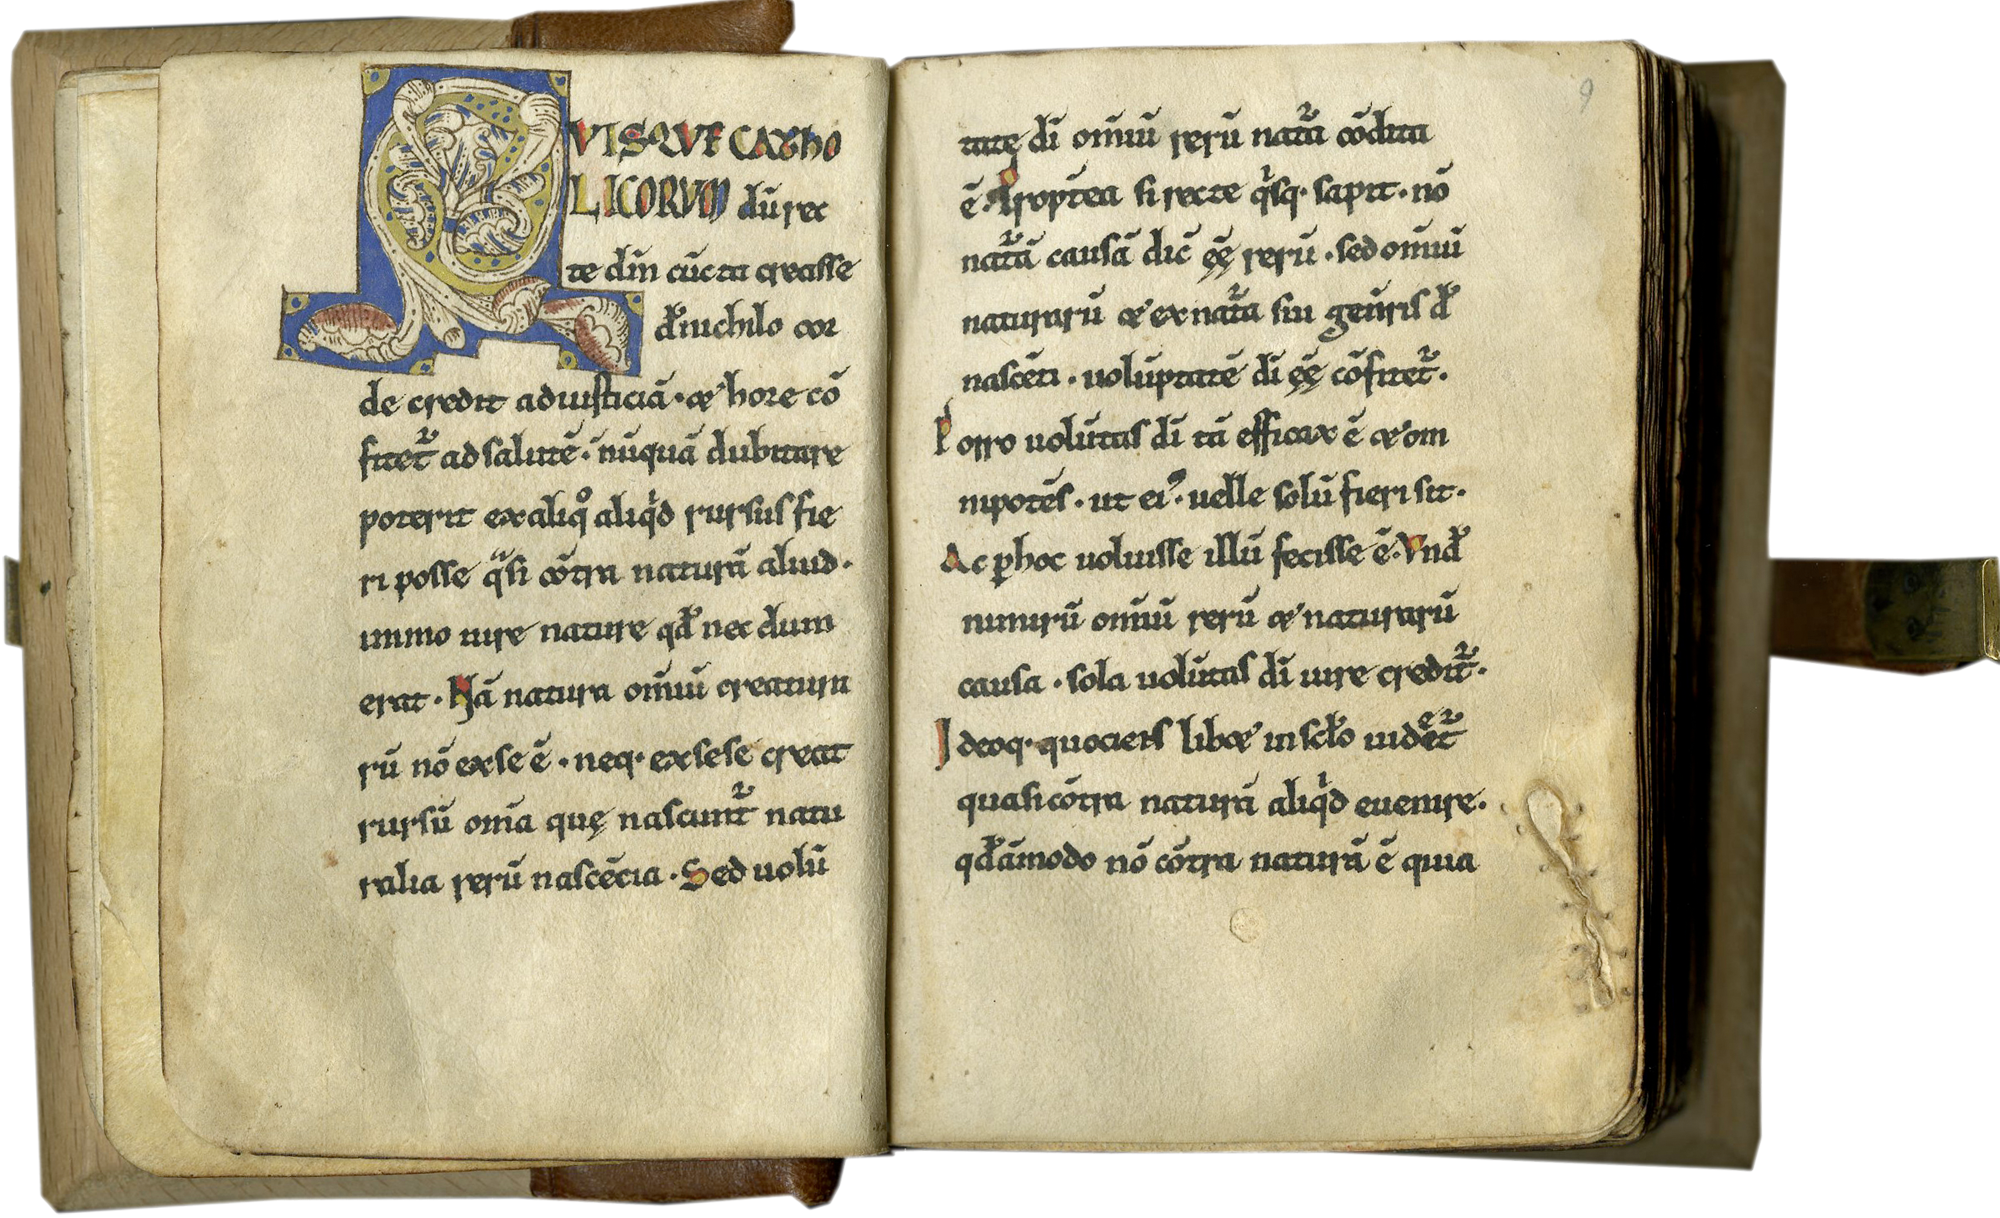 QVISQVE CATHO
LICORVM dū rec
te dm̄ cūcta creasse
de nichilo cor
de credit ad iusticiā · & hore cō
fitet᷑ ad salutē · nūquā dubitare
poterit ex aliqͦ aliqͥd rursus fie
ri posse qͣsi cōtra naturā aliud ·
immo uire nature qđ nec dum
erat · Nā natura om̄iū creatura
rū nō ex se ē · neq· ex sese creat
rursū om̄ia quę nascunt᷑ natu
ralia rerū nascēcia · Sed uolū
9
tate di̅ om̄iū rerū nat᷑a cōdita
ē · Propt̄ea si recte qͥsq· sapit · nō
nat᷑ā causā dic̄ ęę̄ rerū · sed om̄iū
naturarū & ex nat᷑a sui gen̄ris đ
nascēti · uolūptatē di̅ ęę̄ cōfitet᷑ ·
Porro uolūtas di̅ tā efficax ē & om
nipotēs · ut ei᷒ · uelle solū fieri sit ·
Ac p̱ hoc uoluisse illū fecisse ē · Vnđ
nimirū om̄iū rerū & naturarū
causa · sola uolūtas di̅ uire credit᷑ ·
Ideoq· quociens lib& in scło uideͤt᷑
quasi cōtra naturā aliqͥd euenire ·
qđāmodo nō cōtra naturā ē quia